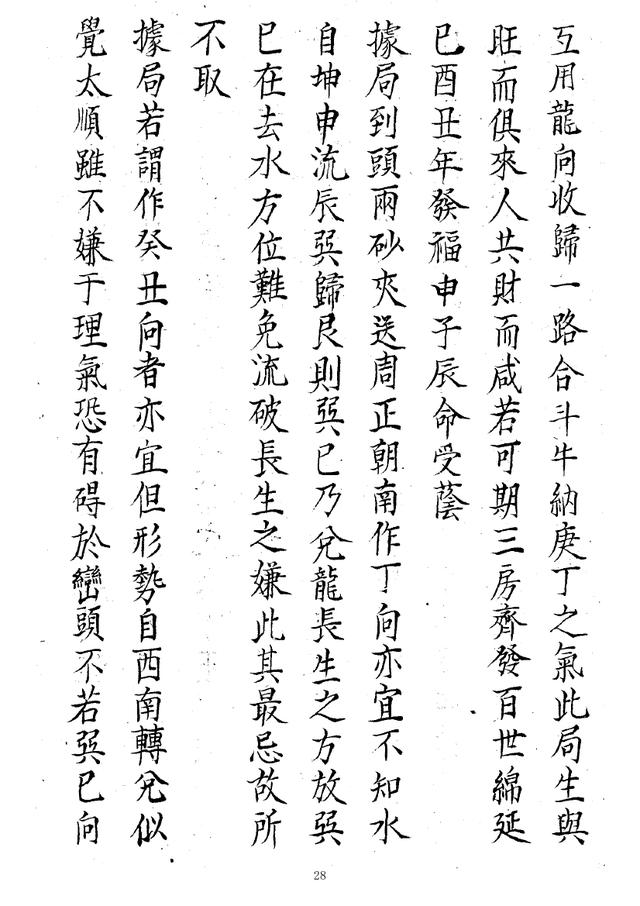 互用龍向收歸一路合斗牛納庚丁之氣此局生與
旺而俱來人共財而咸若可期三房齊發百世綿延
巳酉丑年發福申子辰命受蔭
據局到頭兩砂夾送周正朝南作丁向亦宜不知水
自坤申流辰巽歸艮則巽巳乃兌龍長生之方放巽
巳在去水方位難免流破長生之嫌此其最忌故所
不取
據局若謂作癸丑向者亦宜但形勢自西南轉兌似
覺太順雖不嫌于理氣恐有碍於巒頭不若巽巳向
28